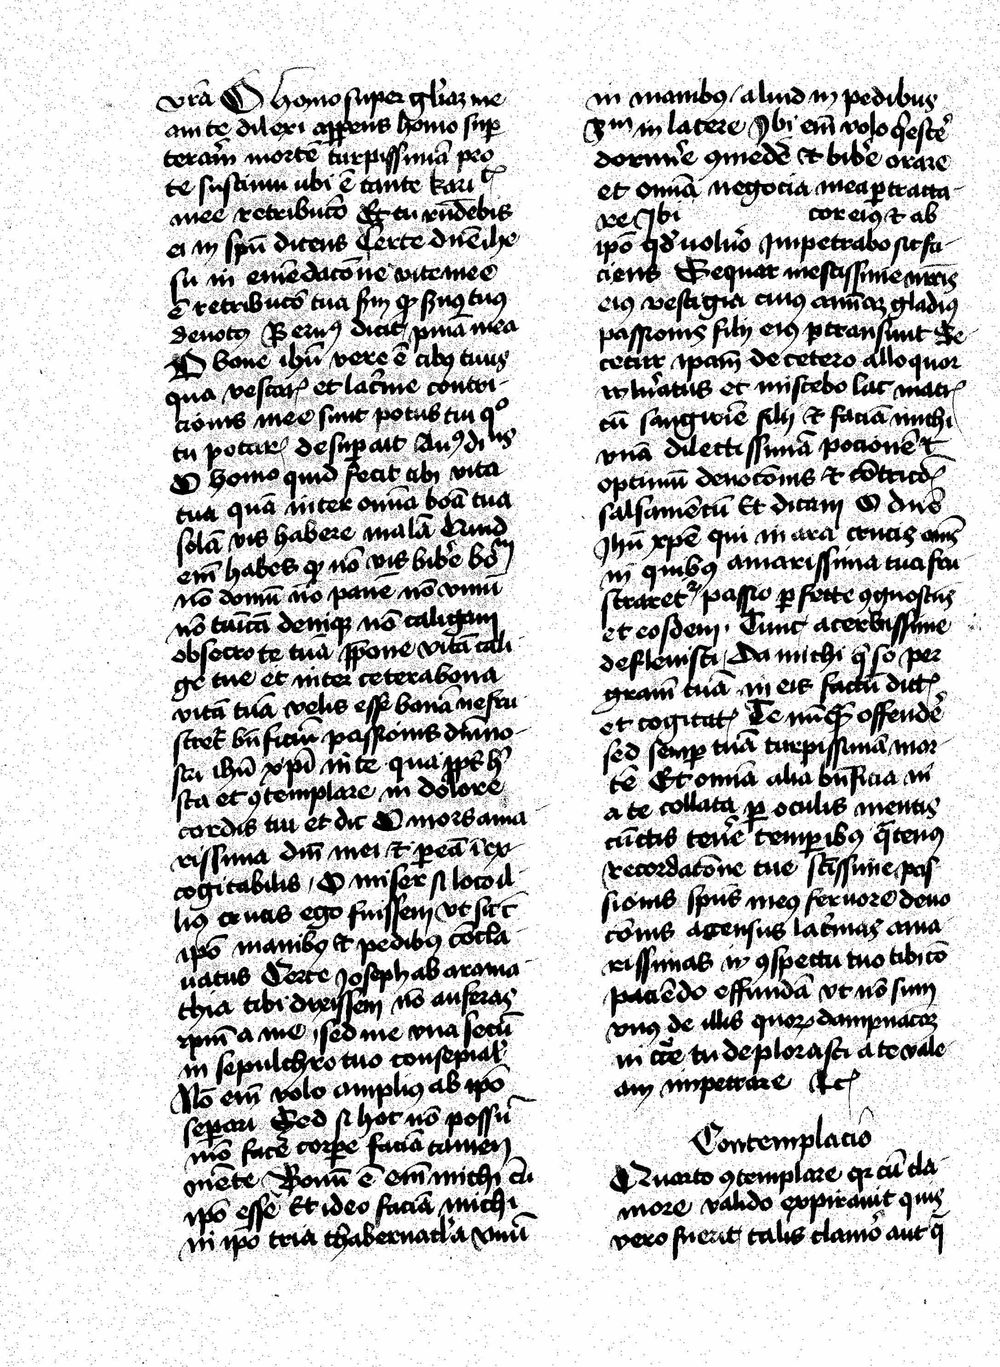 vr̄a O homo super gl̄iaȝ me
am te dilexi apꝑens homo sup̄
terār̄ mortē turpissimā pro
te sustinui ubi ē tante kari
mee retribuc̄o Et tu rn̄debis
ei in sp̄u dicens Certe dn̄e ihe
su in emēdac̄one vite mee
ē retribuc̄o tua
deuotꝰ Bern̄ꝰ dicit
O bone ih̄u vere ē cibꝰ tuus
qua vescar̄ et lac̄me contri-
cionis mee sunt potus tui qͦ
tu potar̄ desup̄ ait Auꝰ
O homo quid fecit tibi vita
tua quā inter om̄ia bōa tua
solā vis habere malā
em̄ habes
nō domū nō panē nō vinū
nō tunicā deniqꝫ nō caligam
obsecro te tuā p̄pone vitā cali
ge tue et inter cetera bona
vitā tuā velis esse bonā ne fru
stret̄ bn̄ficiū passionis dn̄i no-
stri ih̄u xp̄i in te
sta et ꝯtemplare in dolore
cordis tui et dic O mors ama
rissima dn̄i mei
cogitabilis / O miser si loco il-
liꝰ crucis ego fuissem vt sic
ip̄o manibꝰ et pedibꝰ cōcla-
uatus Certe Joseph ab arama
thia tibi dixissem nō auferas
xp̄m a me / sed me vna secū
in sepulchro tuo consepial̄
Nō em̄ volo ampliꝰ ab ip̄o
separi Sed si hoc nō possū
mō fac̄e corp̄e faciā tamen
mēte Bonū ē em̄ michi cū
ip̄o esse Et ideo faciā michi
in ip̄o tria thabernac̄la vnū
in manibꝰ / aliud in pedibus
in latere Jbi em̄ volo q̄esc̄e
dormir̄e ꝯmedē et bib̄e orare
et om̄ia negocia mea ꝑtracta-
re Jbi cor eiꝰ et ab
ip̄o qd̄ uoluo̊ Jmpetrabo sic fa-
ciens Sequar mestissime mr̄is
eiꝰ vestigia cuiꝰ aīmaȝ gladiꝰ
passionis filij eiꝰ ꝑtransiuit
ipam̄ de cetero alloquor
et miscebo lac
cū sangwīe filij et faciā michi
vnā dilectissimā pocionē et
optimū deuoc̄onis et cōtricō
salsamētū Et dicam O dn̄e
Jh̄u xp̄e qui in ara crucis
in quibꝰ amarissima tua fru
straret̄ passio ꝑfecte ꝯgnosti
et eosdem Tunc acerbissime
defleuisti / Da michi q̄so per
gram̄ tuā in eis factū dict̄
et cogitat̄ Te nūq̄ offendē
sed semꝑ tuā turpissimā mor-
tē Et om̄ia alia bn̄ficia in
a te collata ꝑ oculis mentis
cūctis tenē temporibꝰ q̄tenꝰ
recordac̄one tue sc̄issime pas
sionis sp̄us meꝰ feruore deuo
c̄onis accensus lac̄mas ama
rissimas in ꝯspectu tuo tibi cō
paciēdo effundā vt nō sim
vnꝰ de illis quoꝝ dampnac̄oȝ
in c̄ce tu deplorasti a te vale
am impetrare Etc̄
Contemplacio
Quarto ꝯtemplare qr̄ cū cla-
more valido expirauit quis
vero fuerit talis clamo̊ aut q̄